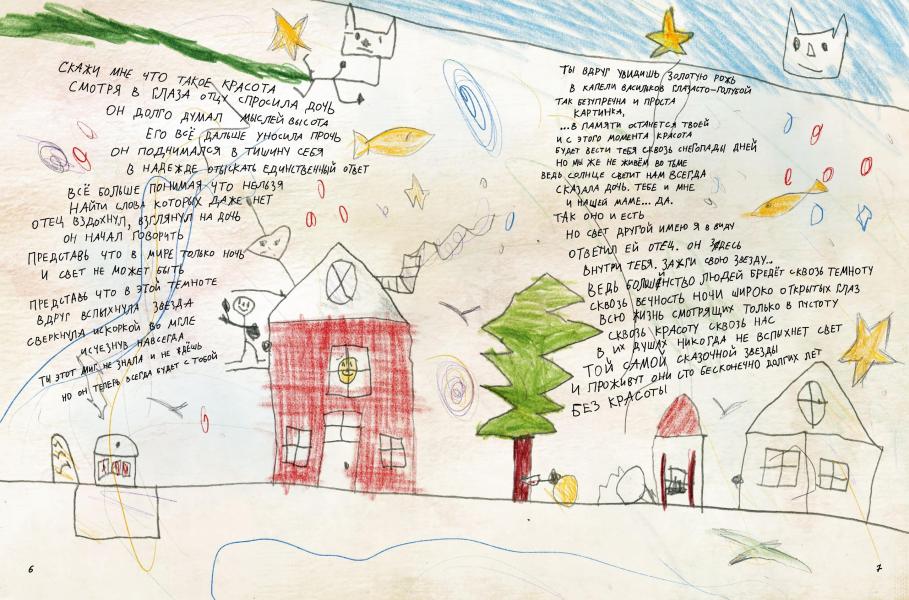 СКАЖИ МНЕ ЧТО ТАКОЕ КРАСОТА
СМОТРЯ В ГЛАЗА ОТЦУ СПРОСИЛА ДОЧЬ
ОН ДОЛГО ДУМАЛ МЫСЛЕЙ ВЫСОТА
ЕГО ВСЁ ДАЛЬШЕ УНОСИЛА ПРОЧЬ
ОН ПОДНИМАЛСЯ В ТИШИНУ СЕБЯ
В НАДЕЖДЕ ОТЫСКАТЬ ЕДИНСТВЕННЫЙ ОТВЕТ
ВСЁ БОЛЬШЕ ПОНИМАЯ ЧТО НЕЛЬЗЯ
НАЙТИ СЛОВА КОТОРЫХ ДАЖЕ НЕТ
ОТЕЦ ВЗДОХНУЛ, ВЗГЛЯНУЛ НА ДОЧЬ
ОН НАЧАЛ ГОВОРИТЬ
ПРЕДСТАВЬ ЧТО В МИРЕ ТОЛЬКО НОЧЬ
И СВЕТ НЕ МОЖЕТ БЫТЬ
ПРЕДСТАВЬ ЧТО В ЭТОЙ ТЕМНОТЕ
ВДРУГ ВСПЫХНУЛА ЗВЕЗДА
СВЕРКНУЛА ИСКОРКОЙ ВО МГЛЕ
ИСЧЕЗНУВ НАВСЕГДА
ТЫ ЭТОТ МИГ НЕ ЗНАЛА И НЕ ЖДЁШЬ
НО ОН ТЕПЕРЬ ВСЕГДА БУДЕТ С ТОБОЙ
6
ТЫ ВДРУГ УВИДИШЬ ЗОЛОТУЮ РОЖЬ
В КАПЕЛИ ВАСИЛЬКОВ ГЛАЗАСТО-ГОЛУБОЙ
ТАК БЕЗУПРЕЧНА И ПРОСТА
КАРТИНКА,
...В ПАМЯТИ ОСТАНЕТСЯ ТВОЕЙ
И С ЭТОГО МОМЕНТА КРАСОТА
БУДЕТ ВЕСТИ ТЕБЯ СКВОЗЬ СНЕГОПАДЫ ДНЕЙ
НО МЫ ЖЕ НЕ ЖИВЁМ ВО ТЬМЕ
ВЕДЬ СОЛНЦЕ СВЕТИТ НАМ ВСЕГДА
СКАЗАЛА ДОЧЬ. ТЕБЕ И МНЕ
И НАШЕЙ МАМЕ... ДА.
ТАК ОНО И ЕСТЬ
НО СВЕТ ДРУГОЙ ИМЕЮ Я В ВИДУ
ОТВЕТИЛ ЕЙ ОТЕЦ. ОН ЗДЕСЬ
ВНУТРИ ТЕБЯ. ЗАЖГИ СВОЮ ЗВЕЗДУ..
ВЕДЬ БОЛЬШИНСТВО ЛЮДЕЙ БРЕДЁТ СКВОЗЬ ТЕМНОТУ
СКВОЗЬ ВЕЧНОСТЬ НОЧИ ШИРОКО ОТКРЫТЫХ ГЛАЗ
ВСЮ ЖИЗНЬ СМОТРЯЩИХ ТОЛЬКО В ПУСТОТУ
СКВОЗЬ КРАСОТУ СКВОЗЬ НАС
В ИХ ДУШАХ НИКОГДА НЕ ВСПЫХНЕТ СВЕТ
ТОЙ САМОЙ СКАЗОЧНОЙ ЗВЕЗДЫ
И ПРОЖИВУТ ОНИ СТО БЕСКОНЕЧНО ДОЛГИХ ЛЕТ
БЕЗ КРАСОТЫ
7